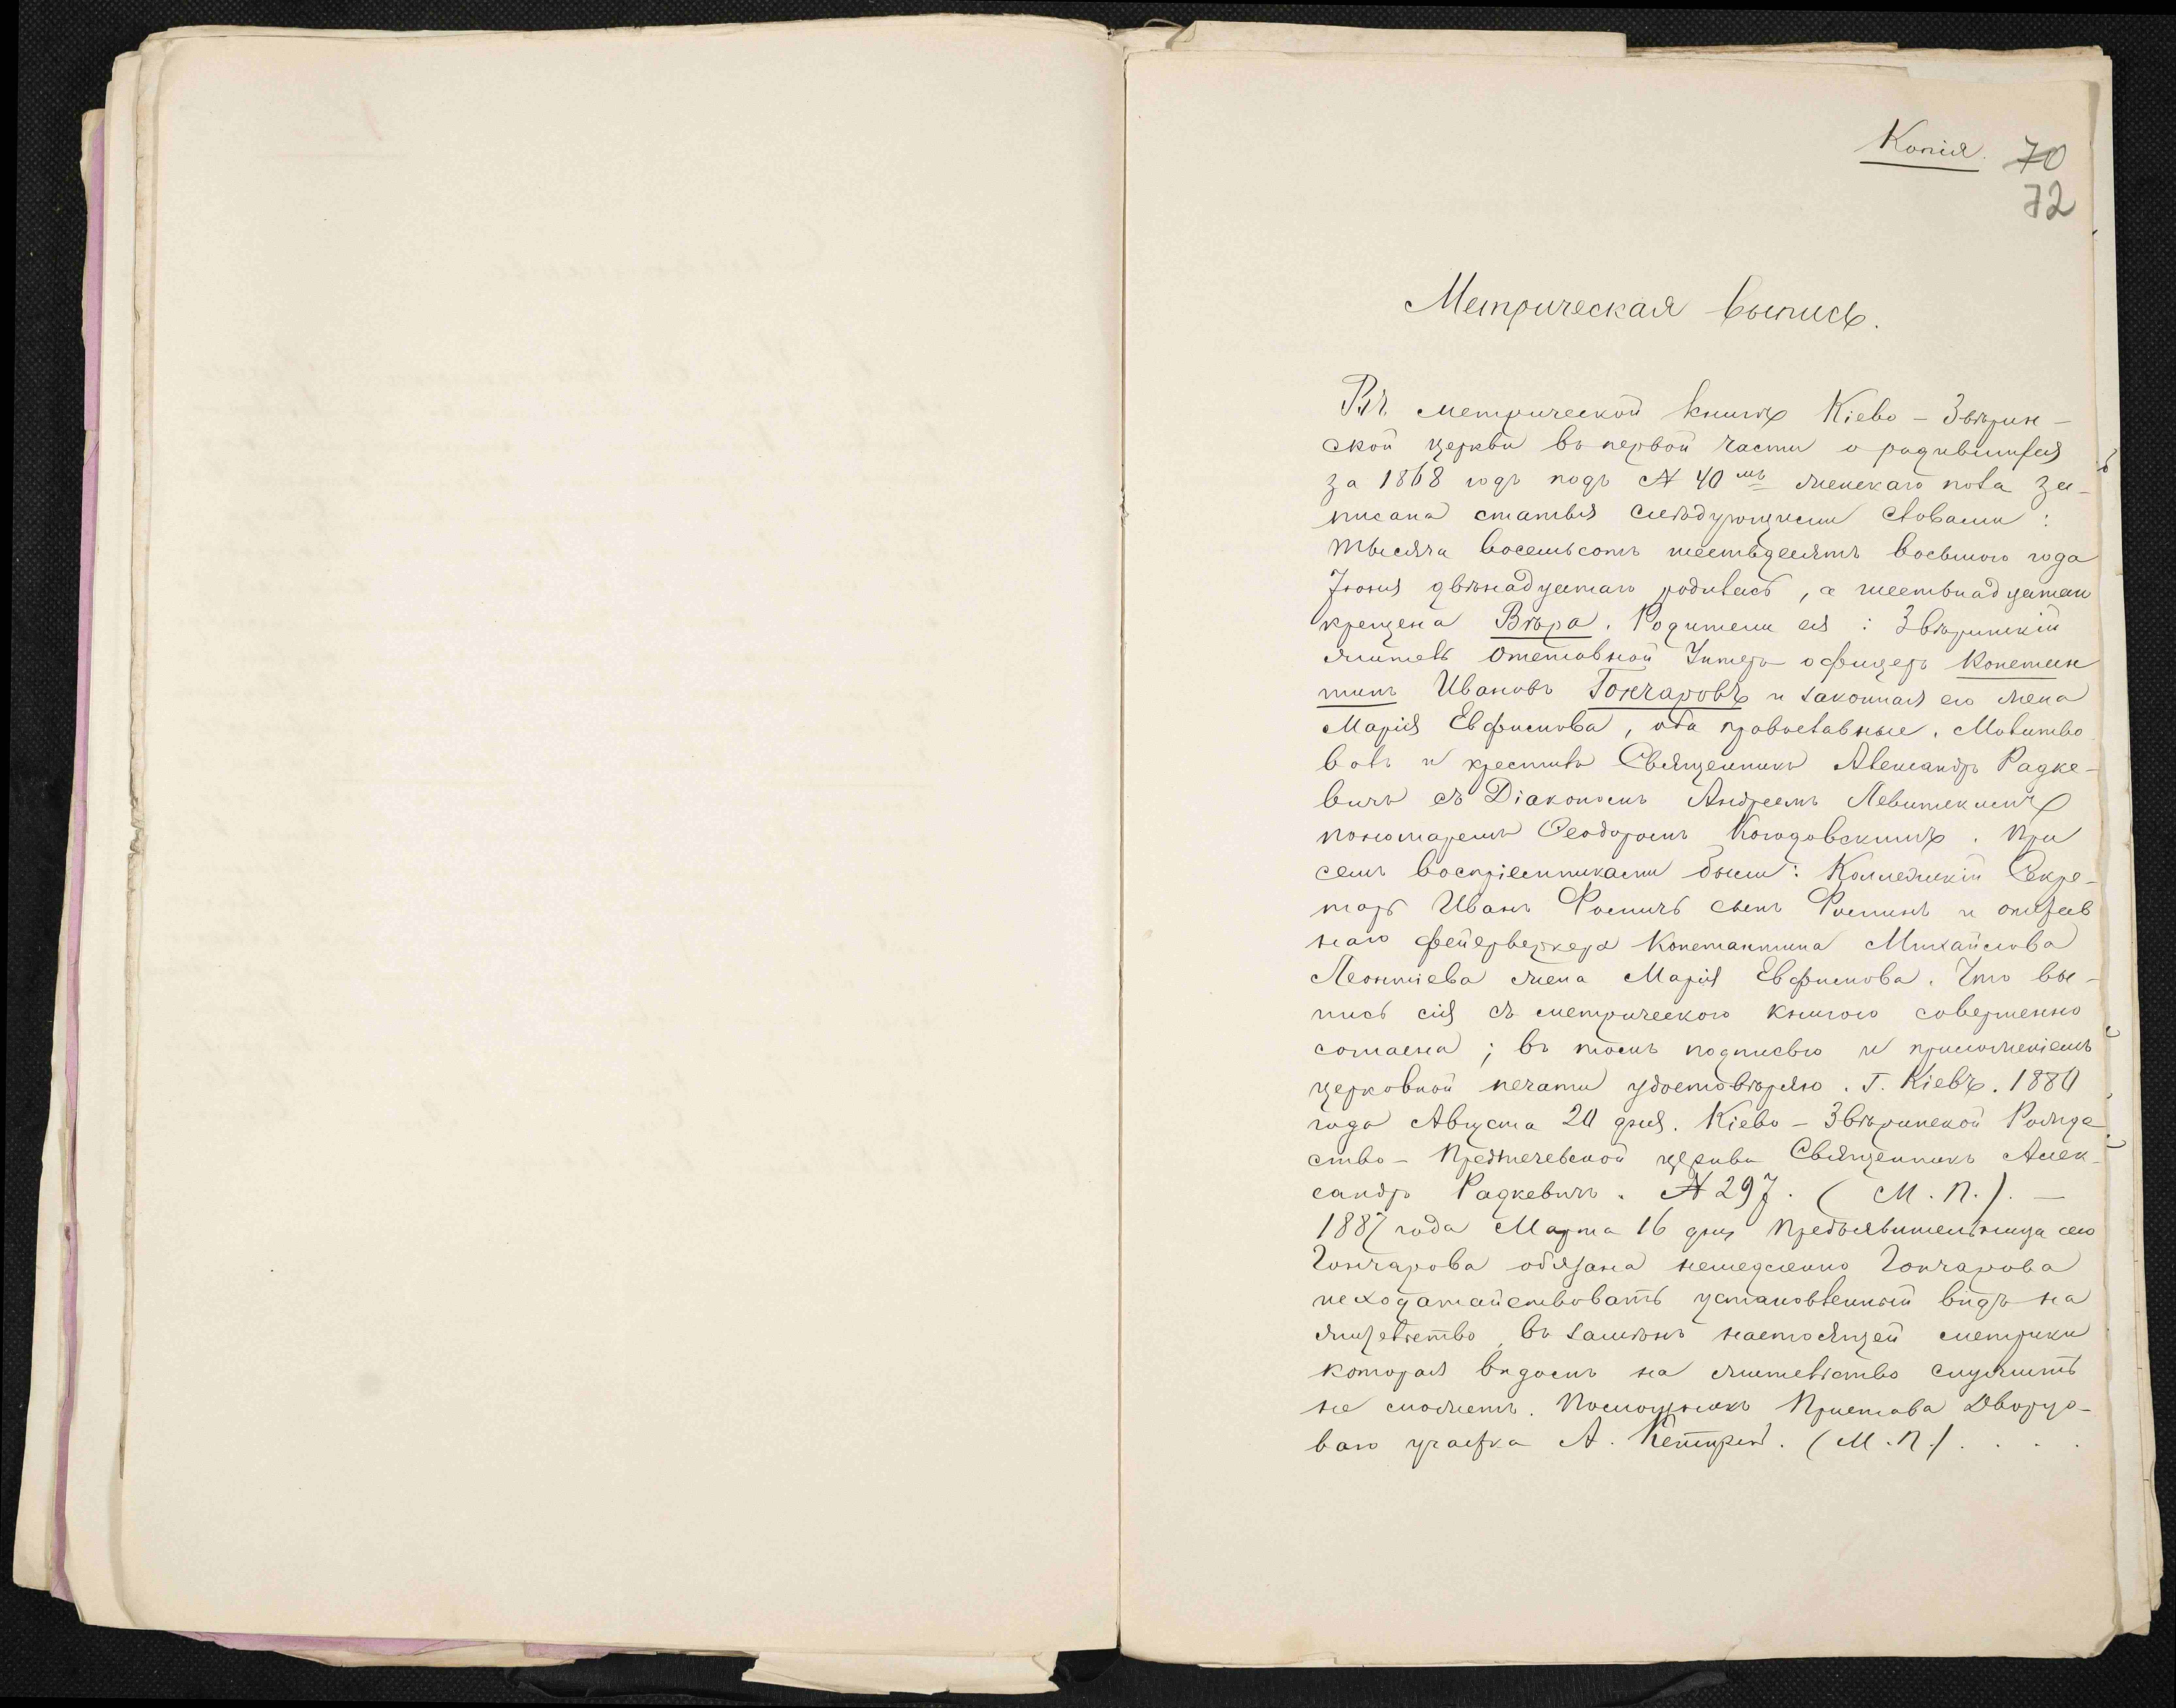 Копія. 70
72
Метрическая выпись.
Въ метрической книгѣ Кіево-Звѣрин-
ской церкви въ первой части о родившихся
за 1868 годъ подъ № 40 мъ женскаго пола за-
писана статья слѣдующими словами:
тысяча восемьсотъ шестьдесятъ восьмого года
Іюня двѣнадцатаго родилась, а шестьнадцатаго
крещена Вѣра. Родители ея: Звѣринскій
житель отставной Унтеръ офицеръ Констан
тинъ Ивановъ Гончаровъ и законная его жена
Марія Евфимова, оба православные. Молитво
валъ и крестилъ Священникъ Александръ Радке-
вичъ съ Діакономъ Андреемъ Левитскимъ
пономаремъ Ѳеодоромъ. При
семъ воспріемниками были: Коллежскій Секре-
тарь Иванъ Ѳомичъ сынъ Ѳоминъ и отстав
наго фейерверкера Константина Михайлова
Леонтіева жена Марія Евфимова. Что вы-
пись сія съ метрическою книгою совершенно
согласна; въ томъ подписью и приложеніемъ
церковной печати удостовѣряю. Г. Кіевъ. 1880
года Августа 20 дня. Кіево-Звѣринской Рожде
ство-Предтечевской церкви Священникъ Алек-
сандръ Радкевичъ. № 297. (М.П.). —
1887 года Марта 16 дня Предъявительница сего
Гончарова обязана немедленно Гончарова
исходатайствовать установленный видъ на
жительство, въ замѣнъ настоящей метрики
которая видомъ на жительство служить
не можетъ. Помощникъ Пристава Дворцо-
ваго участка А. (М.П.)....